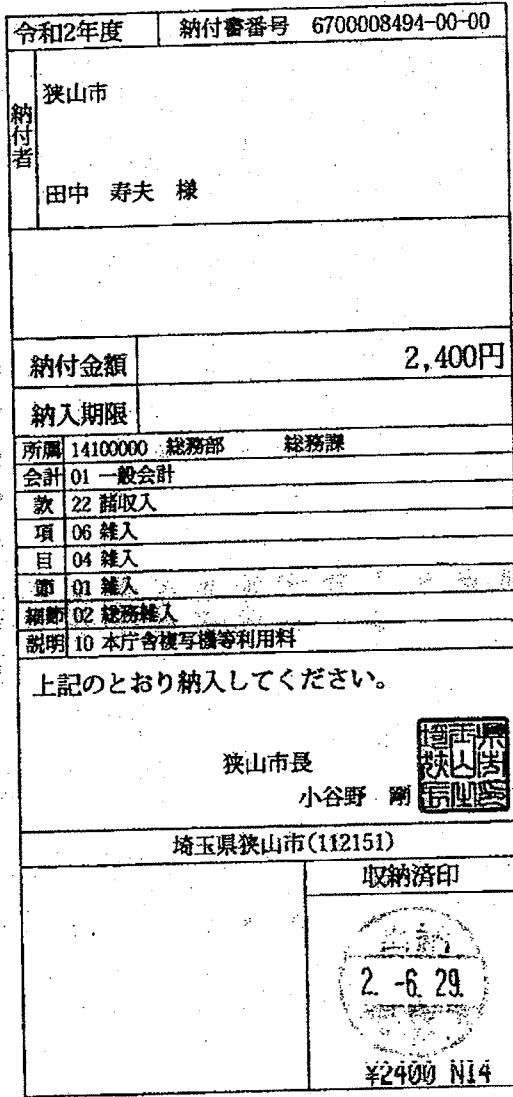 令和2年度 納付書番号 6700008494-00-00
納付者
狭山市
田中 寿夫 様
納付金額 2,400円
納入期限
所属 14100000 総務部 総務課
会計 01 一般会計
款 22 諸収入
項 06 雑入
目 04 雑入
節 01 雑入
細節 02 総務雑入
説明 10 本庁舎複写機等利用料
上記のとおり納入してください。
狭山市長
小谷野 剛
埼玉県狭山市(112151)
収納済印
2. -6. 29.
¥2400 N14